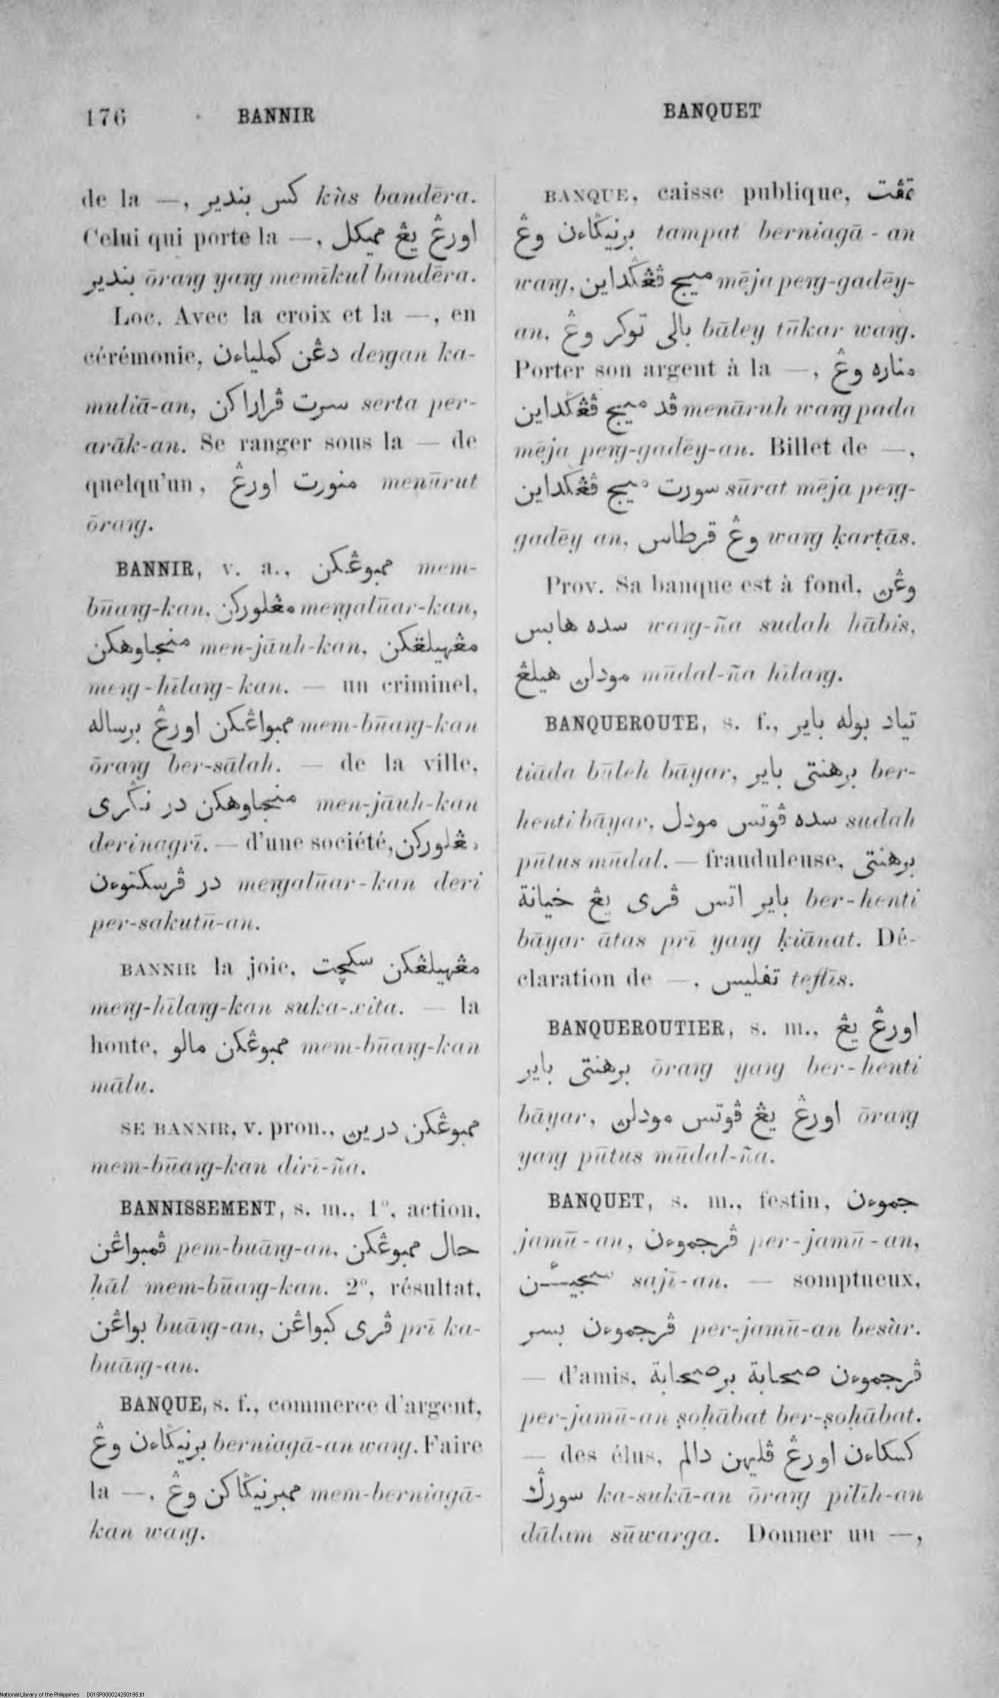 176 BANNIR BANQUET
de la —, كس بندير kùs bandēra.
Celui qui porte la —, اورڠ يڠ مميكل
بندير ōraŋ yaŋ memīkul bandēra.
Loc. Avec la croix et la —, en
cérémonie, دڠن كملياءن deŋan ka-
muliā-an, سرت ڤراراكن serta per-
arāk-an. Se ranger sous la — de
quelqu'un, منورت اورڠ menūrut
ōraŋ.
BANNIR, v. a., ممبوڠكن mem-
būaŋ-kan, مڠلوركن meŋalūar-kan,
منجاوهكن men-jāuh-kan, مڠهيلڠكن
meŋ-hīlaŋ-kan. — un criminel,
ممبواڠكن اورڠ برساله mem-būaŋ-kan
ōraŋ ber-sālah. — de la ville,
منجاوهكن در نݢري men-jāuh-kan
deri nagrī. — d'une société, مڠلوركن
در ڤرسكتوءن meŋalūar-kan deri
per-sakutū-an.
BANNIR la joie, مڠهيلڠكن سكچت
meŋ-hīlaŋ-kan suka-xita. — la
honte, ممبوڠكن مالو mem-būaŋ-kan
mālu.
SE BANNIR, v. pron., ممبوڠكن درين
mem-būaŋ-kan dirī-ña.
BANNISSEMENT, s. m., 1°, action,
ڤمبواڠن pem-buāŋ-an, حال ممبوڠكن
hāl mem-būaŋ-kan. 2°, résultat,
بواڠن buāŋ-an, ڤري كبواڠن prī ka-
buāŋ-an.
BANQUE, s. f., commerce d'argent,
برنيݢاءن وڠ berniagā-an waŋ. Faire
la —, ممبرنيݢاكن وڠ mem-berniagā-
kan waŋ.
BANQUE, caisse publique, تمڤت
برنيݢاءن وڠ tampat berniagā-an
waŋ, ميج ڤڠݢداين mēja peŋ-gadēy-
an, بالي توكر وڠ bāley tūkar waŋ.
Porter son argent à la —, مناره وڠ
ڤد ميج ڤڠݢداين menāruh waŋ pada
mēja peŋ-gadēy-an. Billet de —,
سورت ميج ڤڠݢداين sūrat mēja peŋ-
gadēy an, وڠ قرطاس waŋ ḳarṭās.
Prov. Sa banque est à fond, وڠن
سده هابس waŋ-ña sudah hābis,
مودلن هيلڠ mūdal-ña hīlaŋ.
BANQUEROUTE, s. f., تياد بوله باير
tiāda būleh bāyar, برهنتي باير ber-
henti bāyar, سده ڤوتس مودل sudah
pūtus mūdal. — frauduleuse, برهنتي
باير اتس ڤري يڠ خيانة ber-henti
bāyar ātas prī yaŋ ḳiānat. Dé-
claration de —, تفليس teflīs.
BANQUEROUTIER, s. m., اورڠ يڠ
برهنتي باير ōraŋ yaŋ ber-henti
bāyar, اورڠ يڠ ڤوتس مودلن ōraŋ
yaŋ pūtus mūdal-ña.
BANQUET, s. m., festin, جموءن
jamū-an, ڤرجموءن per-jamū-an,
saji-an. — somptueux,
ڤرجموءن بسر per-jamū-an besàr.
— d'amis, ڤرجموءن صحابة برصحابة
per-jamū-an ṣoḥābat ber-ṣoḥābat.
— des élus, كسكاءن اورڠ ڤليهن دالم
سورݢ ka-sukā-an ōraŋ pilīh-an
dālam sūwarga. Donner un —,
National Library of the Philippines